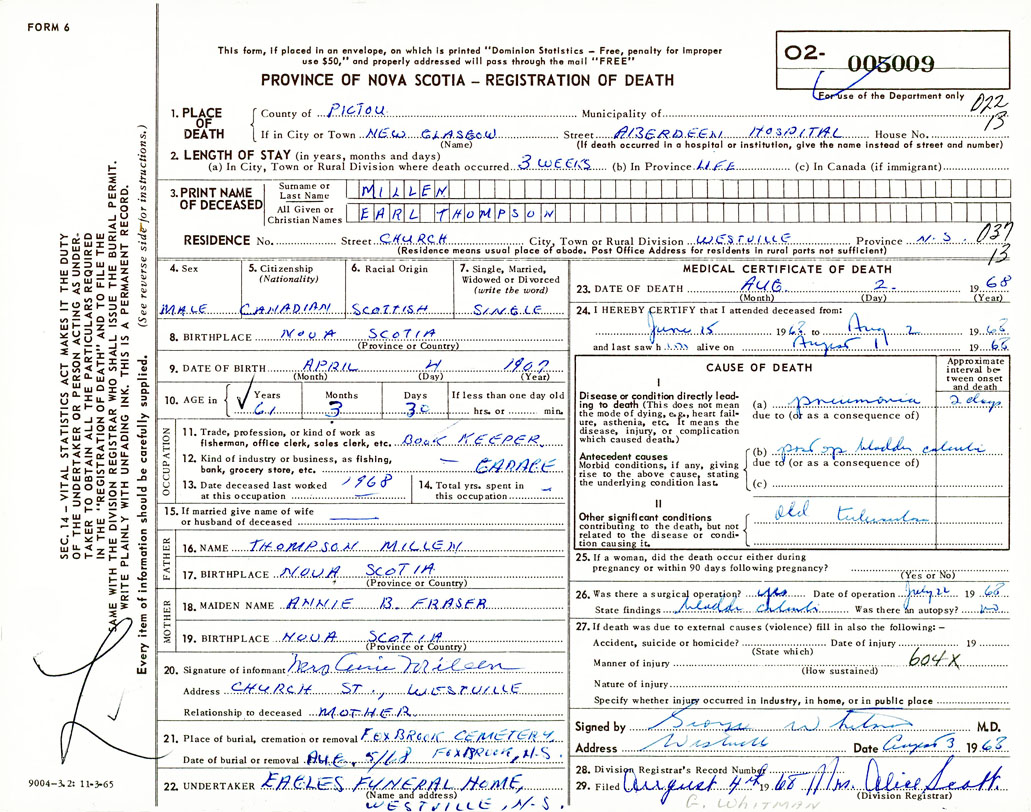 FORM 6
This form, if placed in an envelope, on which is printed "Dominion Statistics – Free, penalty for improper
use $50," and properly addressed will pass through the mail "FREE"
PROVINCE OF NOVA SCOTIA – REGISTRATION OF DEATH
O2- 005009
For use of the Department only
022
13
1. PLACE OF DEATH
County of PICTOU Municipality of
If in City or Town NEW GLASGOW Street ABERDEEN HOSPITAL House No.
(Name) (If death occurred in a hospital or institution, give the name instead of street and number)
2. LENGTH OF STAY (in years, months and days)
(a) In City, Town or Rural Division where death occurred 3 WEEKS (b) In Province LIFE (c) In Canada (if immigrant)
3. PRINT NAME OF DECEASED
Surname or Last Name MILLEN
All Given or Christian Names EARL THOMPSON
RESIDENCE No. Street CHURCH City, Town or Rural Division WESTVILLE Province N.S. 037
(Residence means usual place of abode. Post Office Address for residents in rural parts not sufficient) 13
4. Sex
MALE
5. Citizenship
(Nationality)
CANADIAN
6. Racial Origin
SCOTTISH
7. Single, Married,
Widowed or Divorced
(write the word)
SINGLE
8. BIRTHPLACE NOVA SCOTIA
(Province or Country)
9. DATE OF BIRTH APRIL 4 1907
(Month) (Day) (Year)
10. AGE in Years Months Days If less than one day old
61 3 30 hrs. or min.
OCCUPATION
11. Trade, profession, or kind of work as
fisherman, office clerk, sales clerk, etc. BOOK KEEPER
12. Kind of industry or business, as fishing,
bank, grocery store, etc. — GARAGE
13. Date deceased last worked
at this occupation 1968
14. Total yrs. spent in
this occupation –
15. If married give name of wife
or husband of deceased —
FATHER
16. NAME THOMPSON MILLEN
17. BIRTHPLACE NOVA SCOTIA
(Province or Country)
MOTHER
18. MAIDEN NAME ANNIE B. FRASER
19. BIRTHPLACE NOVA SCOTIA
(Province or Country)
20. Signature of informant Mrs Annie Millen
Address CHURCH ST., WESTVILLE
Relationship to deceased MOTHER
21. Place of burial, cremation or removal FOXBROOK CEMETERY
Date of burial or removal AUG. 5/68 FOXBROOK, N.S.
22. UNDERTAKER EAGLES FUNERAL HOME,
(Name and address)
WESTVILLE, N.S.
MEDICAL CERTIFICATE OF DEATH
23. DATE OF DEATH AUG. 2. 1968
(Month) (Day) (Year)
24. I HEREBY CERTIFY that I attended deceased from:
June 15 1968 to Aug 2 1968
and last saw him alive on August 1 1968
CAUSE OF DEATH
Approximate interval between onset and death
I
Disease or condition directly leading to death (This does not
mean the mode of dying, e.g., heart failure, asthenia, etc. It means the
disease, injury, or complication
which caused death.)
(a) pneumonia 2 days
due to (or as a consequence of)
Antecedent causes
Morbid conditions, if any, giving
rise to the above cause, stating
the underlying condition last.
(b) post op bladder calculi
due to (or as a consequence of)
(c)
II
Other significant conditions
contributing to the death, but not
related to the disease or condition causing it.
Old
25. If a woman, did the death occur either during
pregnancy or within 90 days following pregnancy?
(Yes or No)
26. Was there a surgical operation? yes Date of operation July 22 1968
State findings bladder calculi Was there an autopsy? no
27. If death was due to external causes (violence) fill in also the following: –
Accident, suicide or homicide? Date of injury 19
(State which)
Manner of injury 604X
(How sustained)
Nature of injury
Specify whether injury occurred in industry, in home, or in public place
Signed by George Whitman M.D.
Address Westville Date August 3 1968
28. Division Registrar's Record Number
29. Filed August 4th 1968 Mrs. Alice Scott.
(Division Registrar)
G. WHITMAN
SEC. 14 – VITAL STATISTICS ACT MAKES IT THE DUTY
OF THE UNDERTAKER OR PERSON ACTING AS UNDER-
TAKER TO OBTAIN ALL THE PARTICULARS REQUIRED
IN THE "REGISTRATION OF DEATH" AND TO FILE THE
SAME WITH THE DIVISION REGISTRAR WHO SHALL ISSUE THE BURIAL PERMIT.
WRITE PLAINLY WITH UNFADING INK. THIS IS A PERMANENT RECORD.
Every item of information should be carefully supplied. (See reverse side for instructions.)
9004-3.2: 11-3-65